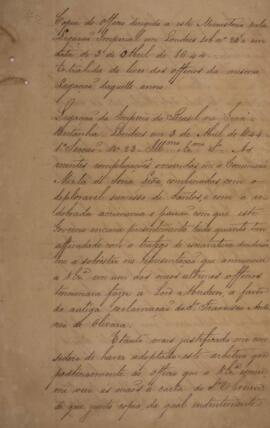 Copia do officio dirigido a este Ministerio pela
Legação Imperial em Londres sob nº 23 e em
data de 3 de Abril de 1844
trahida do livro dos officios da mesma
Legação daquelle anno.
Legação do Imperio do Brasil na Grãa-
Bretanha. Londres em 3 de Abril de 1844.
1ª Secção Nº 23. Illmo Exmo Sr. As
recentes complicações occorridas na Commissão
Mixta de Serra Leôa, combinadas com o
deploravel successo de Santos, e com a re
dobrada animosidade e paixão com que este
Governo encara presentemente tudo quanto tem
affinidade com o trafico de escravatura induzirão
me a sobrestar na representação que annunciei
a V. Exª em um dos meus ultimos officios
tencionava fazer a Lord Aberdeen, a favor
da antiga reclamação do Sr. Francisco Anto
nio de Oliveira.
E tanto mais justificado me con
sidero de haver adoptado este arbitrio que
posteriormente ao officio que a V. Exª
me veio as mãos a carta do Sr. Oliveira
de que junto copia da qual